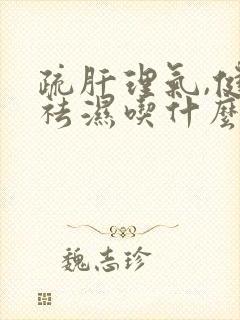 疏肝理氣,健
祛濕喫什麼
魏志珍